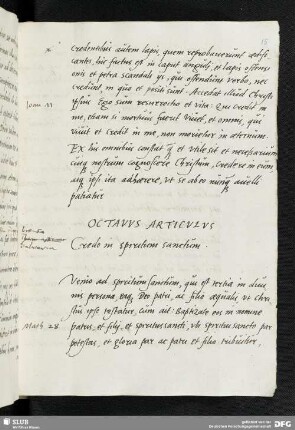 Credentibus autem lapis, quem reprobaverunt aedifi
cantes, hic factus est in caput anguli, et lapis offensi
onis et petra scandali ijs, qui offendunt verbo, nec
credunt, in quo et positi sunt. Accedat illud Christi
Joan 11
ipsius Ego sum resurrectio et vita. Qui credit in
me, etiam si mortuus fuerit vivet, et omnis, qui
vivit et credit in me, non morietur in aeternum.
Ex his omnibus constat et utile sit et necessarium
nostrum cognoscere Christum, credere in eum
ipsi ita adhaerere, ut se ab eo avelli
patiatur
OCTAVVS ARTICVLVS
Credo in spiritum sanctum.
Venio ad spiritum sanctum, qui est tertia in divi
nis persona, Deo patri, ac filio aequalis, ut Chri
stus ipse testatur, cum ait. Baptizate eos in nomine
Math 28
patris, et filij, et spiritus sancti, ubi spiritui sancto par
potestas, et gloria par ac patri et filio tribuitur.
SLUB
Wir führen Wissen.
DFG